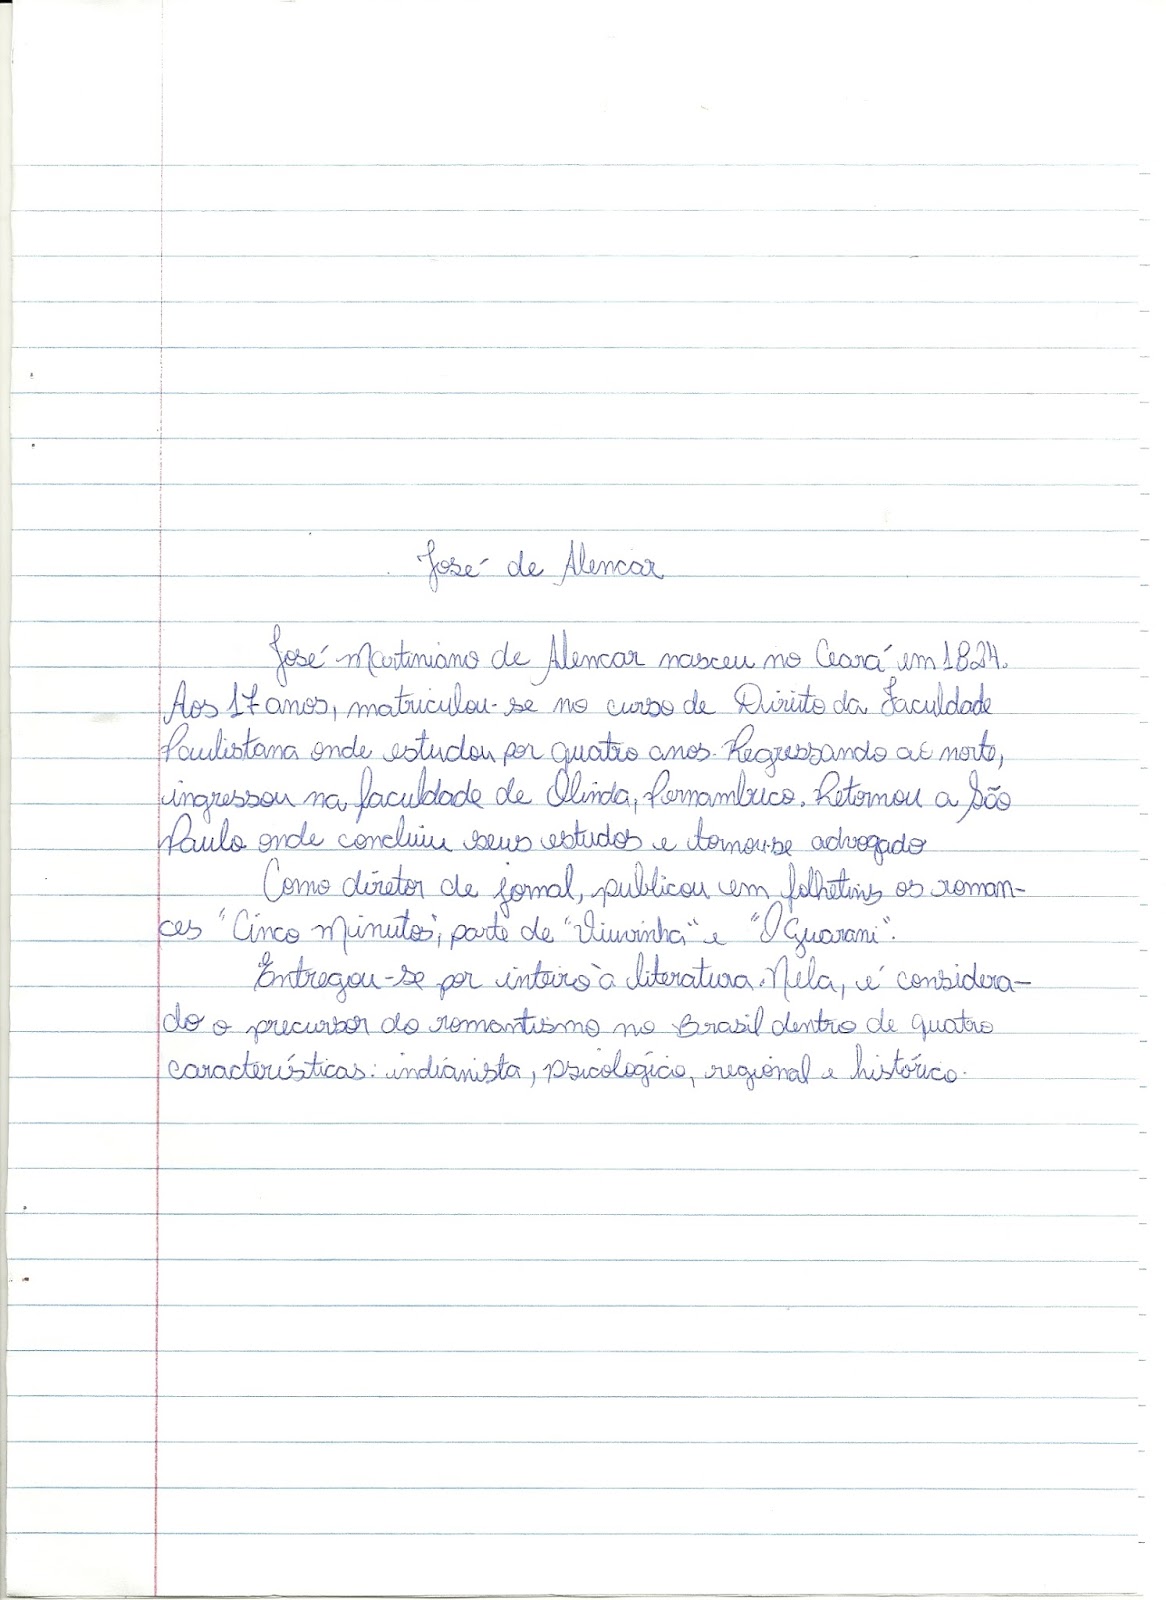 José de Alencar
José Martiniano de Alencar nasceu no Ceará em 1824.
Aos 17 anos, matriculou-se no curso de Direito da Faculdade
Paulistana onde estudou por quatro anos. Regressando ao norte,
ingressou na faculdade de Olinda, Pernambuco. Retornou a São
Paulo onde concluiu seus estudos e tornou-se advogado
Como diretor de jornal, publicou em folhetins os roman-
ces "Cinco Minutos", parte de "Viuvinha" e "O Guarani".
Entregou-se por inteiro à literatura. Nela, é considera-
do o precursor do romantismo no Brasil dentro de quatro
características: indianista, psicológico, regional e histórico.